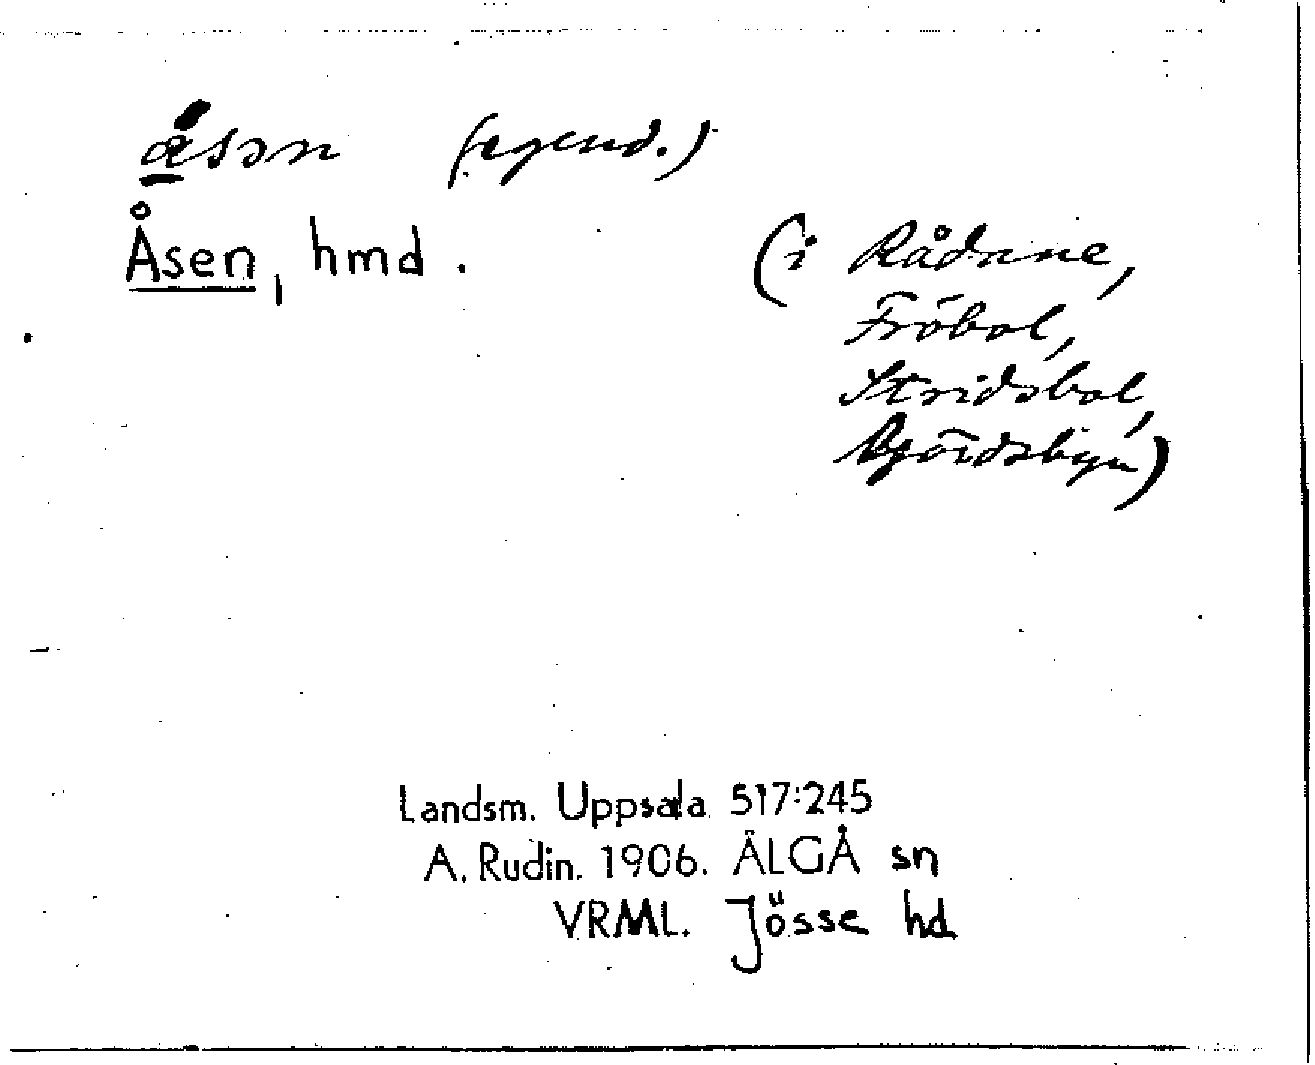 åsən (egend.)
Åsen, hmd.
(i Rådane,
Fröbol,
Stridsbol,
Björdsbyn)
Landsm. Uppsala 517:245
A. Rudin. 1906. ÄLGÅ sn
VRML. Jösse hd